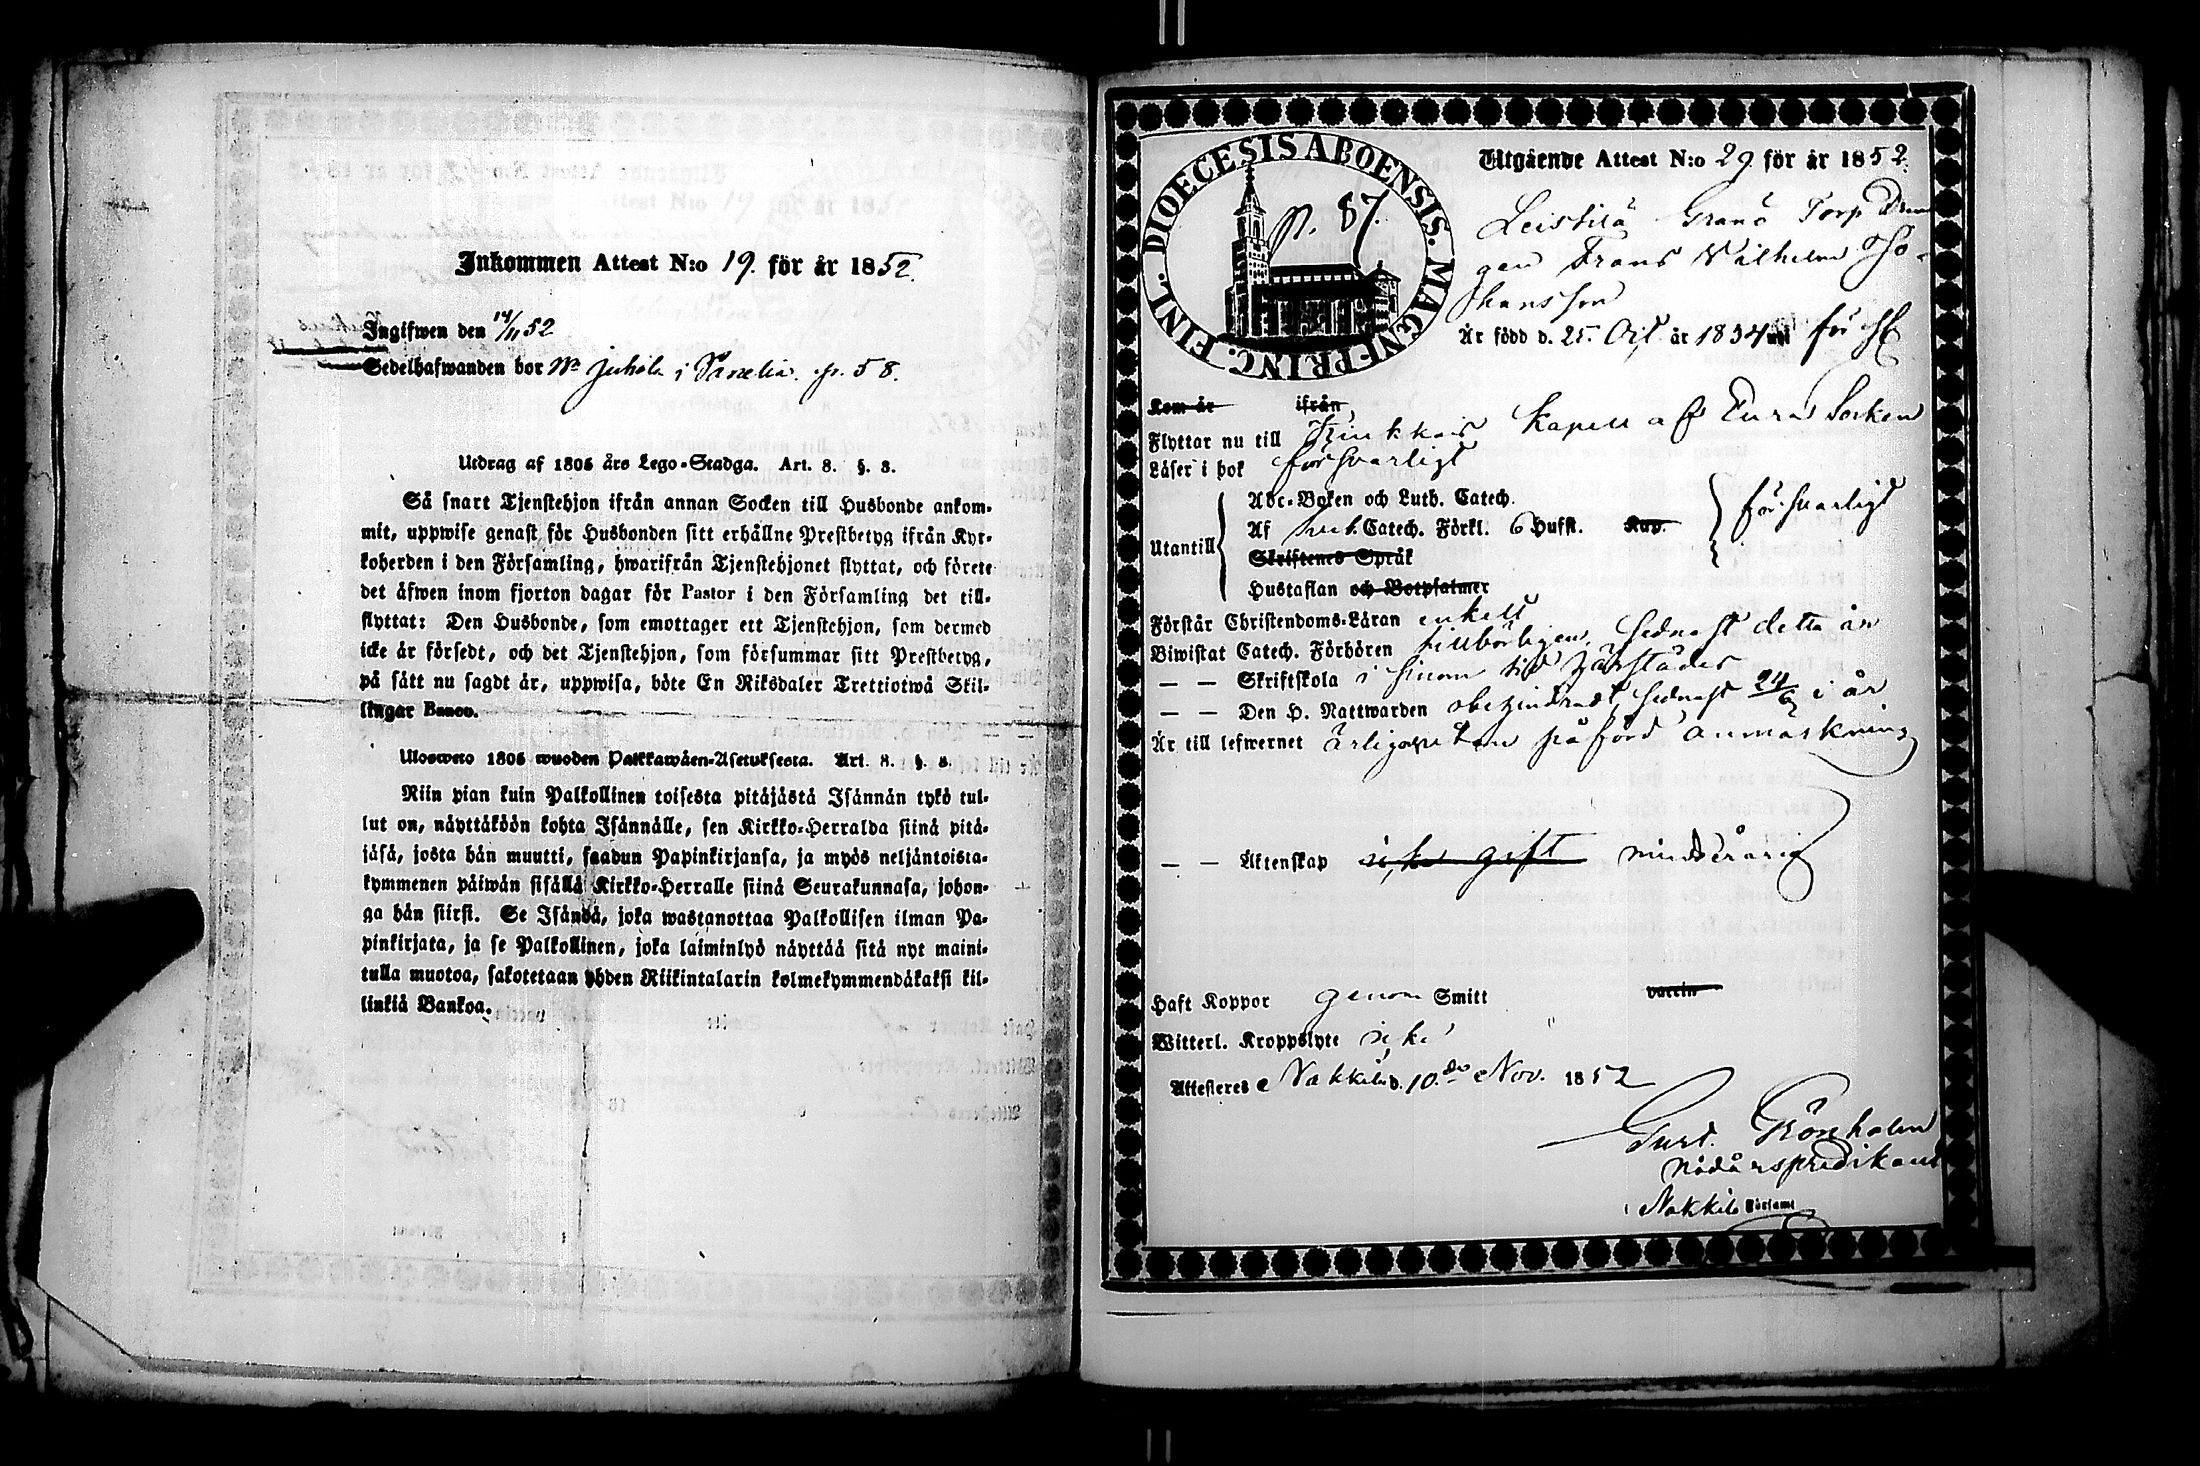 Inkommen Attest N:o 19. för år 1852.
Ingifwen den 14/11 52
Sedelhafwanden bor Juhola i p. 58.
Utdrag af 1805 års Lego-Stadga. Art. 8. §. 8.
Så snart Tjenstehjon ifrån annan Socken till Husbonde ankom-
mit, uppwise genast för Husbonden sitt erhållne Prestbetyg ifrån Kyr-
koherden i den Församling, hwarifrån Tjenstehjonet flyttat, och förete
det äfwen inom fjorton dagar för Pastor i den Församling det till-
flyttat: Den Husbonde, som emottager ett Tjenstehjon, som dermed
icke är försedt, och det Tjenstehjon, som försummar sitt Prestbetyg,
på sätt nu sagdt är, uppwisa, böte En Riksdaler Trettiotwå Skil-
lingar Banco.
Ulosweto 1805 wuoden Palkkawäen-Asetuksesta. Art. 8. §. 8.
Niin pian kuin Palkollinen toisesta pitäjästä Isännän tykö tul-
lut on, näyttäköön kohta Isännälle, sen Kirkko-Herralda siinä pitä-
jäsä, josta hän muutti, saadun Papinkirjansa, ja myös neljäntoista-
kymmenen päiwän sisällä Kirkko-Herralle siinä Seurakunnasa, johon-
ga hän siirsi. Se Isändä, joka wastanottaa Palkollisen ilman Pa-
pinkirjata, ja se Palkollinen, joka laiminlyö näyttää sitä nyt maini-
tulla muotoa, sakotetaan yhden Riikintalarin kolmekymmendäkaksi kil-
linkiä Bankoa.
DIOECESIS ABOENSIS. MAGNI PRINC. FINL.
p. 87.
Utgående Attest N:o 29 för år 1852.
Leistilä Granö Torp Dren
gen Frans Wilhelm Jo-
hansson
Är född d. 25. Oct. år 1834
Kom år ifrån
Flyttar nu till Kiukkais Kapell af Eura Socken
Läser i bok försvarligt
Utantill
Abc-Boken och Luth. Catech.
Af Catech. Förkl. 6 Hufst. Kap.
Skriftenes Språk
Hustaflan och Botpsalmer
försvarligt
Förstår Christendoms-Läran enkelt
Biwistat Catech. Förhören tillbörligen, sednast detta år
— — Skriftskola i sinom tid härstädes
— — Den H. Nattwarden obehindradt, sednast 24/6 i år
Är till lefwernet ärlig utan påförd anmärkning
— — Äktenskap icke gift minderårig
Haft Koppor genom Smitt vaccin
Witterl. Kroppslyte icke
Attesteres Nakkila d. 10. de Nov. 1852
Gust. Grönholm
nådårspredikant
i Nakkila Församl